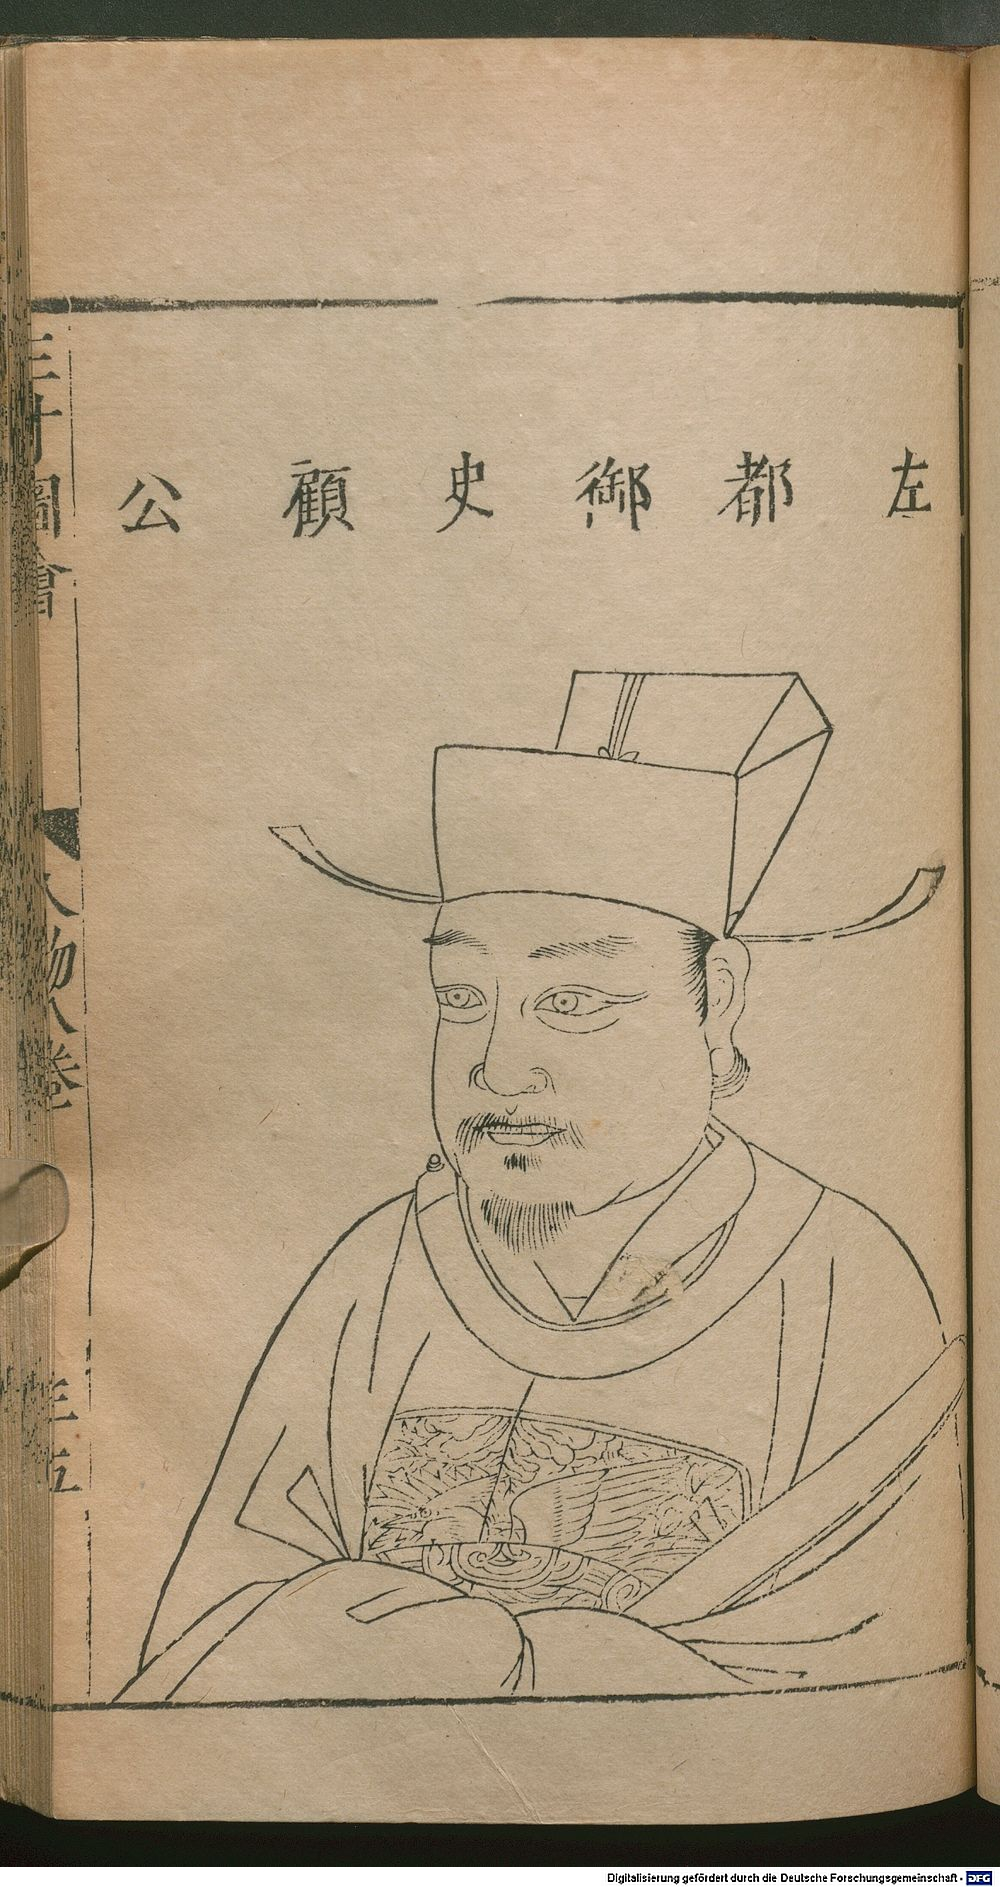 左都御史顧公
三才圖會
人物八卷
三五
Digitalisierung gefördert durch die Deutsche Forschungsgemeinschaft - DFG